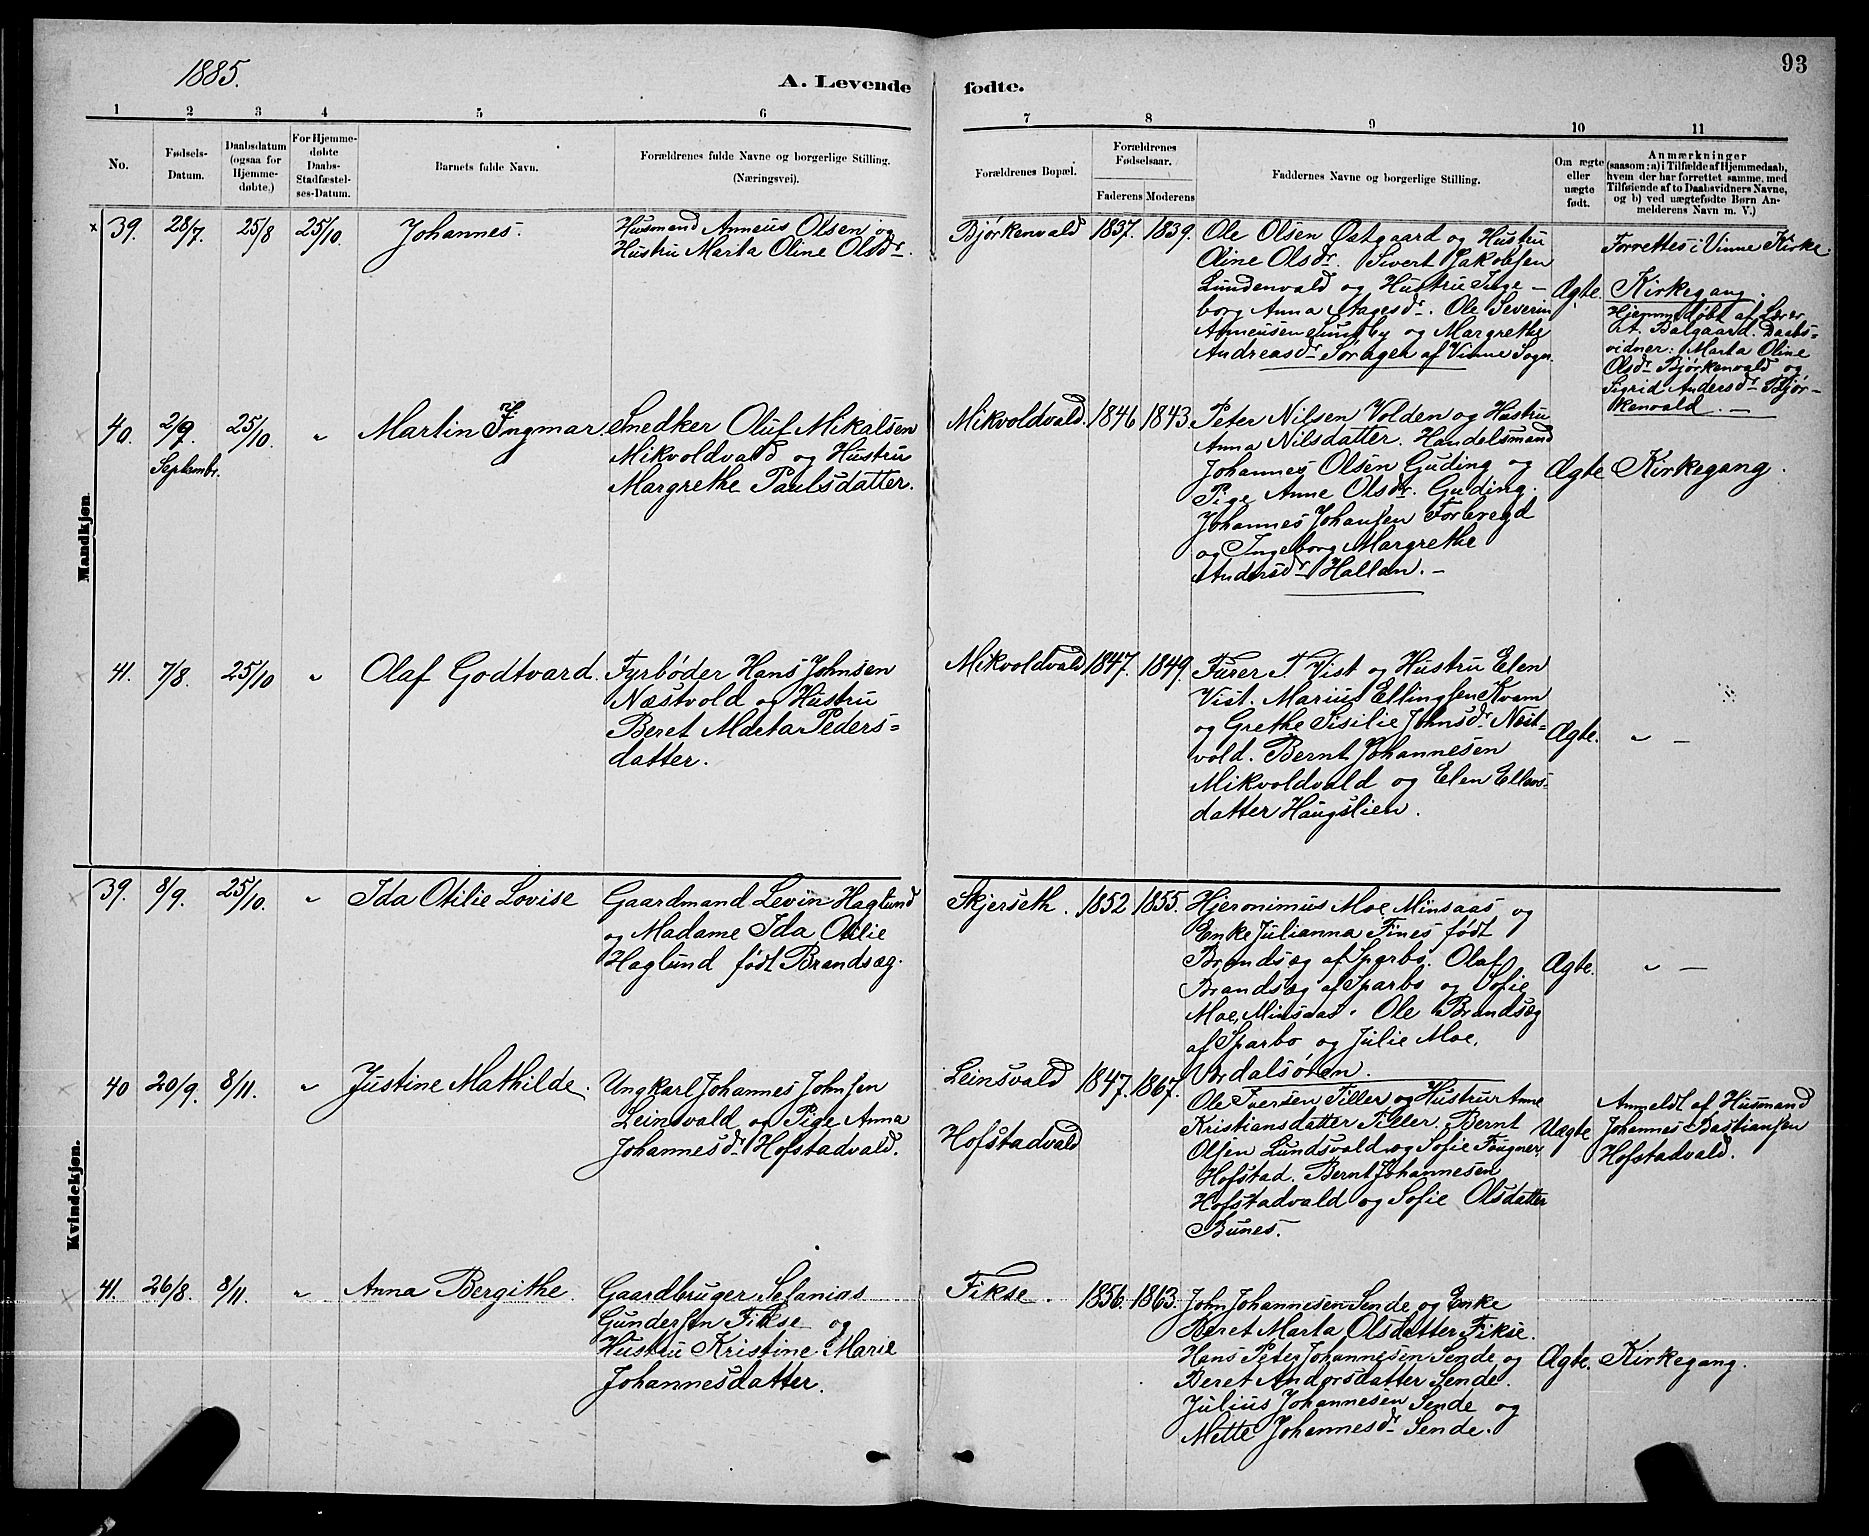 93
1885.
A. Levende fødte.
1 2 3 4 5 6 7 8 9 10 11
No.
Fødsels-
Datum.
Daabsdatum
(ogsaa for
Hjemme-
døbte.)
For Hjemme-
døbte
Daabs-
Stadfæstel-
ses-Datum.
Barnets fulde Navn.
Forældrenes fulde Navne og borgerlige Stilling.
(Næringsvei).
Forældrenes Bopæl.
Forældrenes
Fødselsaar.
Faderens Moderens
Faddernes Navne og borgerlige Stilling.
Om ægte
eller
uægte
født.
Anmærkninger
(saasom: a) i Tilfælde af Hjemmedaab,
hvem der har forrettet samme, med
Tilføiende af to Daabsvidners Navne,
og b) ved uægtefødte Børn An-
melderens Navn m. V.)
Mandkjøn.
× 39. 28/7. 25/8 25/10. Johannes.
Husmand Anneus Olsen og
Hustru Marta Oline Olsdr.
Bjørkenvald 1837. 1839.
Ole Olsen Østgaard og Hustru
Oline Olsdr. Sivert Jakobsen
Lundenvald og Hustru Inge-
borg Anna Aagesdr. Ole Severin
Anneusen Sundby og Margrethe
Andreasdr. af Vinne Sogn.
Ægte.
Forrettes i Vinne Kirke.
Kirkegang.
Hjemmedøbt af Lærer
A. Balgaard. Daabs-
vidner: Marta Oline
Olsdr. Bjørkenvald og
Sigrid Andersdr. Bjør-
kenvald. —
40. 2/9. 25/10. „ Martin Ingmar.
September.
Smedker Oluf Mikalsen
Mikvoldvald og Hustru
Margrethe Paulsdatter.
Mikvoldvald. 1846 1843.
Peter Nilsen Volden og Hustru
Anna Nilsdatter. Handelsmand
Johannes Olsen Guding og
Pige Anne Olsdr. Guding.
Johannes Johansen Forbregd
og Ingeborg Margrethe
Andersdr. Hallan. —
Ægte
Kirkegang.
41. 7/8. 25/10 „ Olaf Godtvard.
Fyrbøder Hans Johnsen
Næstvold og Hustru
Beret Marta Peders=
datter.
Mikvoldvald 1847. 1849.
Furer T. Vist og Hustru Elen
Vist. Marius Ellingsen Kvam
og Grethe Sisilie Johnsdr. Næst=
vold. Bernt Johannesen
Mikvoldvald og Elen Ellevs-
datter Haugslien.
Ægte.
„ —
Kvindekjøn.
× 39. 8/9. 25/10. „ Ida Otilie Lovise
Gaardmand Levin Haglund
og Madame Ida Otilie
Haglund født Brandsæg.
Skjerseth. 1852 1855.
Hjeronimus Moe Minsaas og
Enke Julianna Fines født
Brandsæg af Sparbo. Olaf
Brandsæg af Sparbo og Sofie
Moe, Minsaas. Ole Brandsæg
af Sparbo og Julie Moe.
Værdalsøren.
Ægte.
„ —
× 40 20/9. 8/11. „ Justine Mathilde.
Ungkarl Johannes Johnsen
Leinsvald og Pige Anna
Johannesdr. Hofstadvald.
Leinsvald 1847. 1867.
Hofstadvald
Ole Iversen Tiller og Hustru Anne
Kristiansdatter Tiller. Bernt
Olsen Lundsvald og Sofie Fougner
Hofstad. Bernt Johannesen
Hofstadvald og Sofie Olsdatter
Bunes.
Uægte
Anmeldt af Husmand
Johannes Bastiansen
Hofstadvald.
× 41. 26/8. 8/11. „ Anna Bergithe.
Gaardbruger Sefanias
Gundersen Fikse og
Hustru Kristine Marie
Johannesdatter.
Fikse. 1856. 1863.
John Johannesen Sende og Enke
Beret Marta Olsdatter Fikse.
Hans Peter Johannesen Sende og
Beret Andorsdatter Sende.
Julius Johannesen Sende og
Mette Johannesdr. Sende.
Ægte.
Kirkegang.